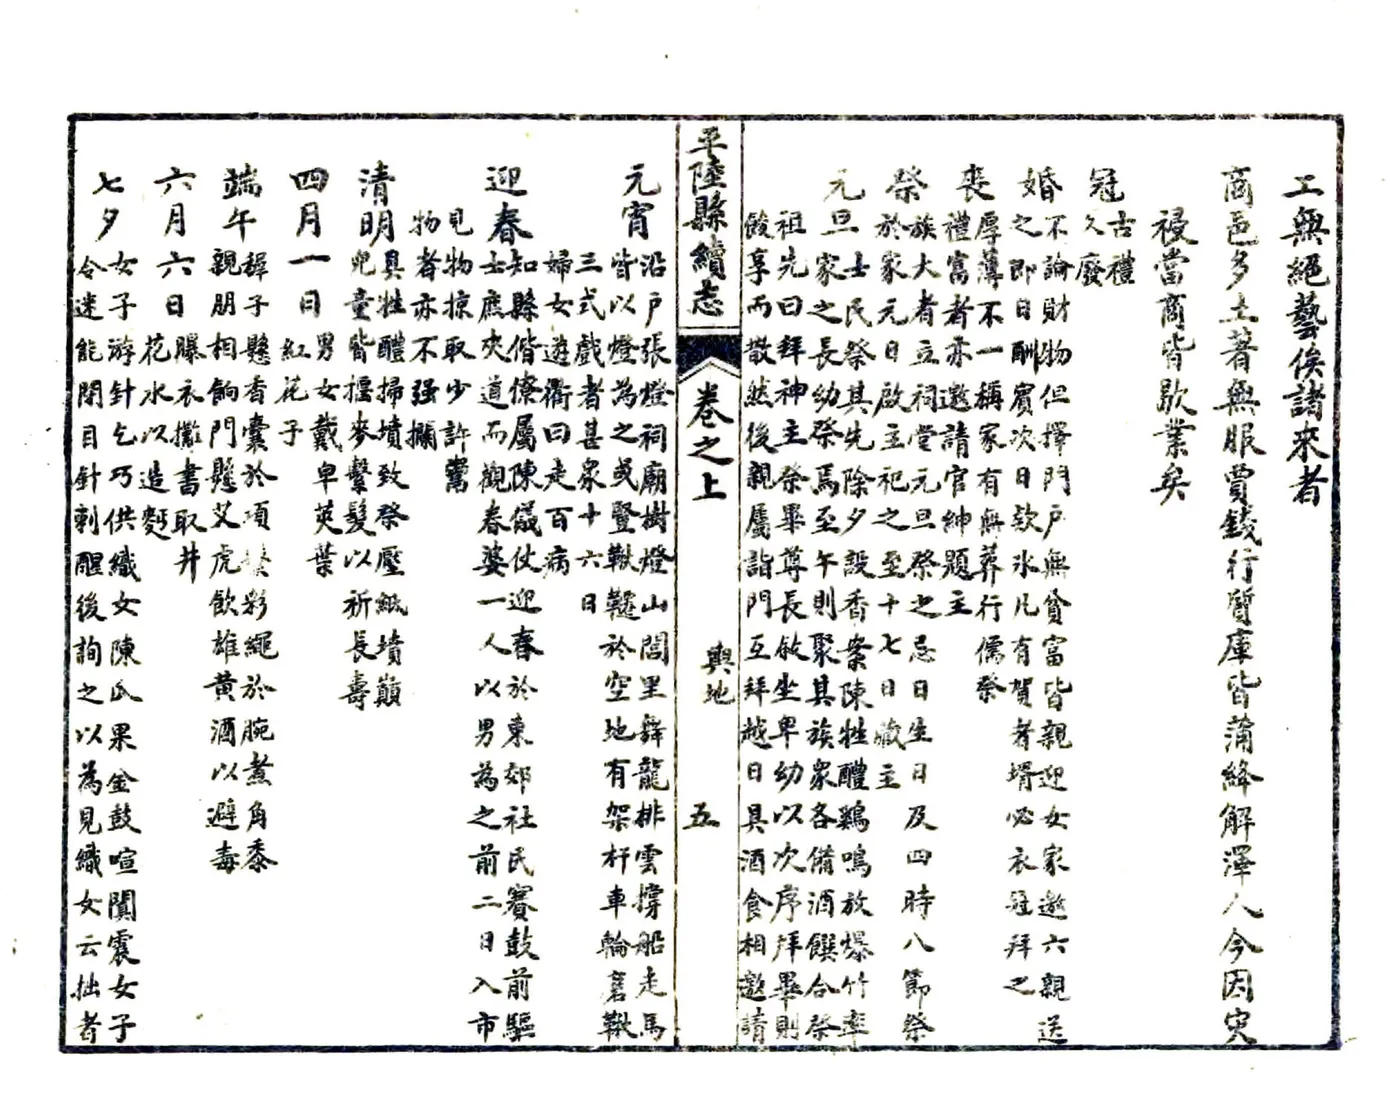 工無絕藝俟諸來者
商邑多土著無服賈錢行質庫皆蒲絳解澤人今因災
祲當商皆歇業矣
冠古禮
久廢
婚不論財物但擇門戶無貧富皆親迎女家邀六親送
之即日酬賓次日欵氷凡有賀者壻必衣冠拜之
喪厚薄不一稱家有無葬行儒祭
禮富者亦邀請官紳題主
祭族大者立祠堂元旦祭之忌日生日及四時八節祭
於家元日啟主祀之至十七日藏主
元旦士民祭其先除夕設香案陳牲醴鷄鳴放爆竹率
家之長幼祭焉至午則聚其族衆各備酒饌合祭
祖先曰拜神主祭畢尊長敘坐卑幼以次序拜畢則
餕享而散然後親屬詣門互拜越日具酒食相邀請
平陸縣續志
卷之上
輿地
五
元宵沿戶張燈祠廟樹燈山閭里舞龍排雲撐船走馬
皆以燈為之或豎鞦韆於空地有架杆車輪磨鞦
三式戲者甚衆十六日
婦女遊衢曰走百病
迎春知縣偕僚屬陳儀仗迎春於東郊社民賽鼓前驅
士庶夾道而觀春婆一人以男為之前二日入市
見物掠取少許鬻
物者亦不强攔
清明具牲醴掃墳致祭壓紙墳巔
兒童皆摳麥繫髮以祈長壽
四月一日男女戴皁莢葉
紅花子
端午稺子懸香囊於項繫彩繩於腕煮角黍
親朋相餉門懸艾虎飲雄黄酒以避毒
六月六日曝衣攤書取井
花水以造麵
七夕女子游針乞巧供織女陳瓜果金鼓喧闐震女子
令迷能閉目針刺醒後詢之以為見織女云拙者